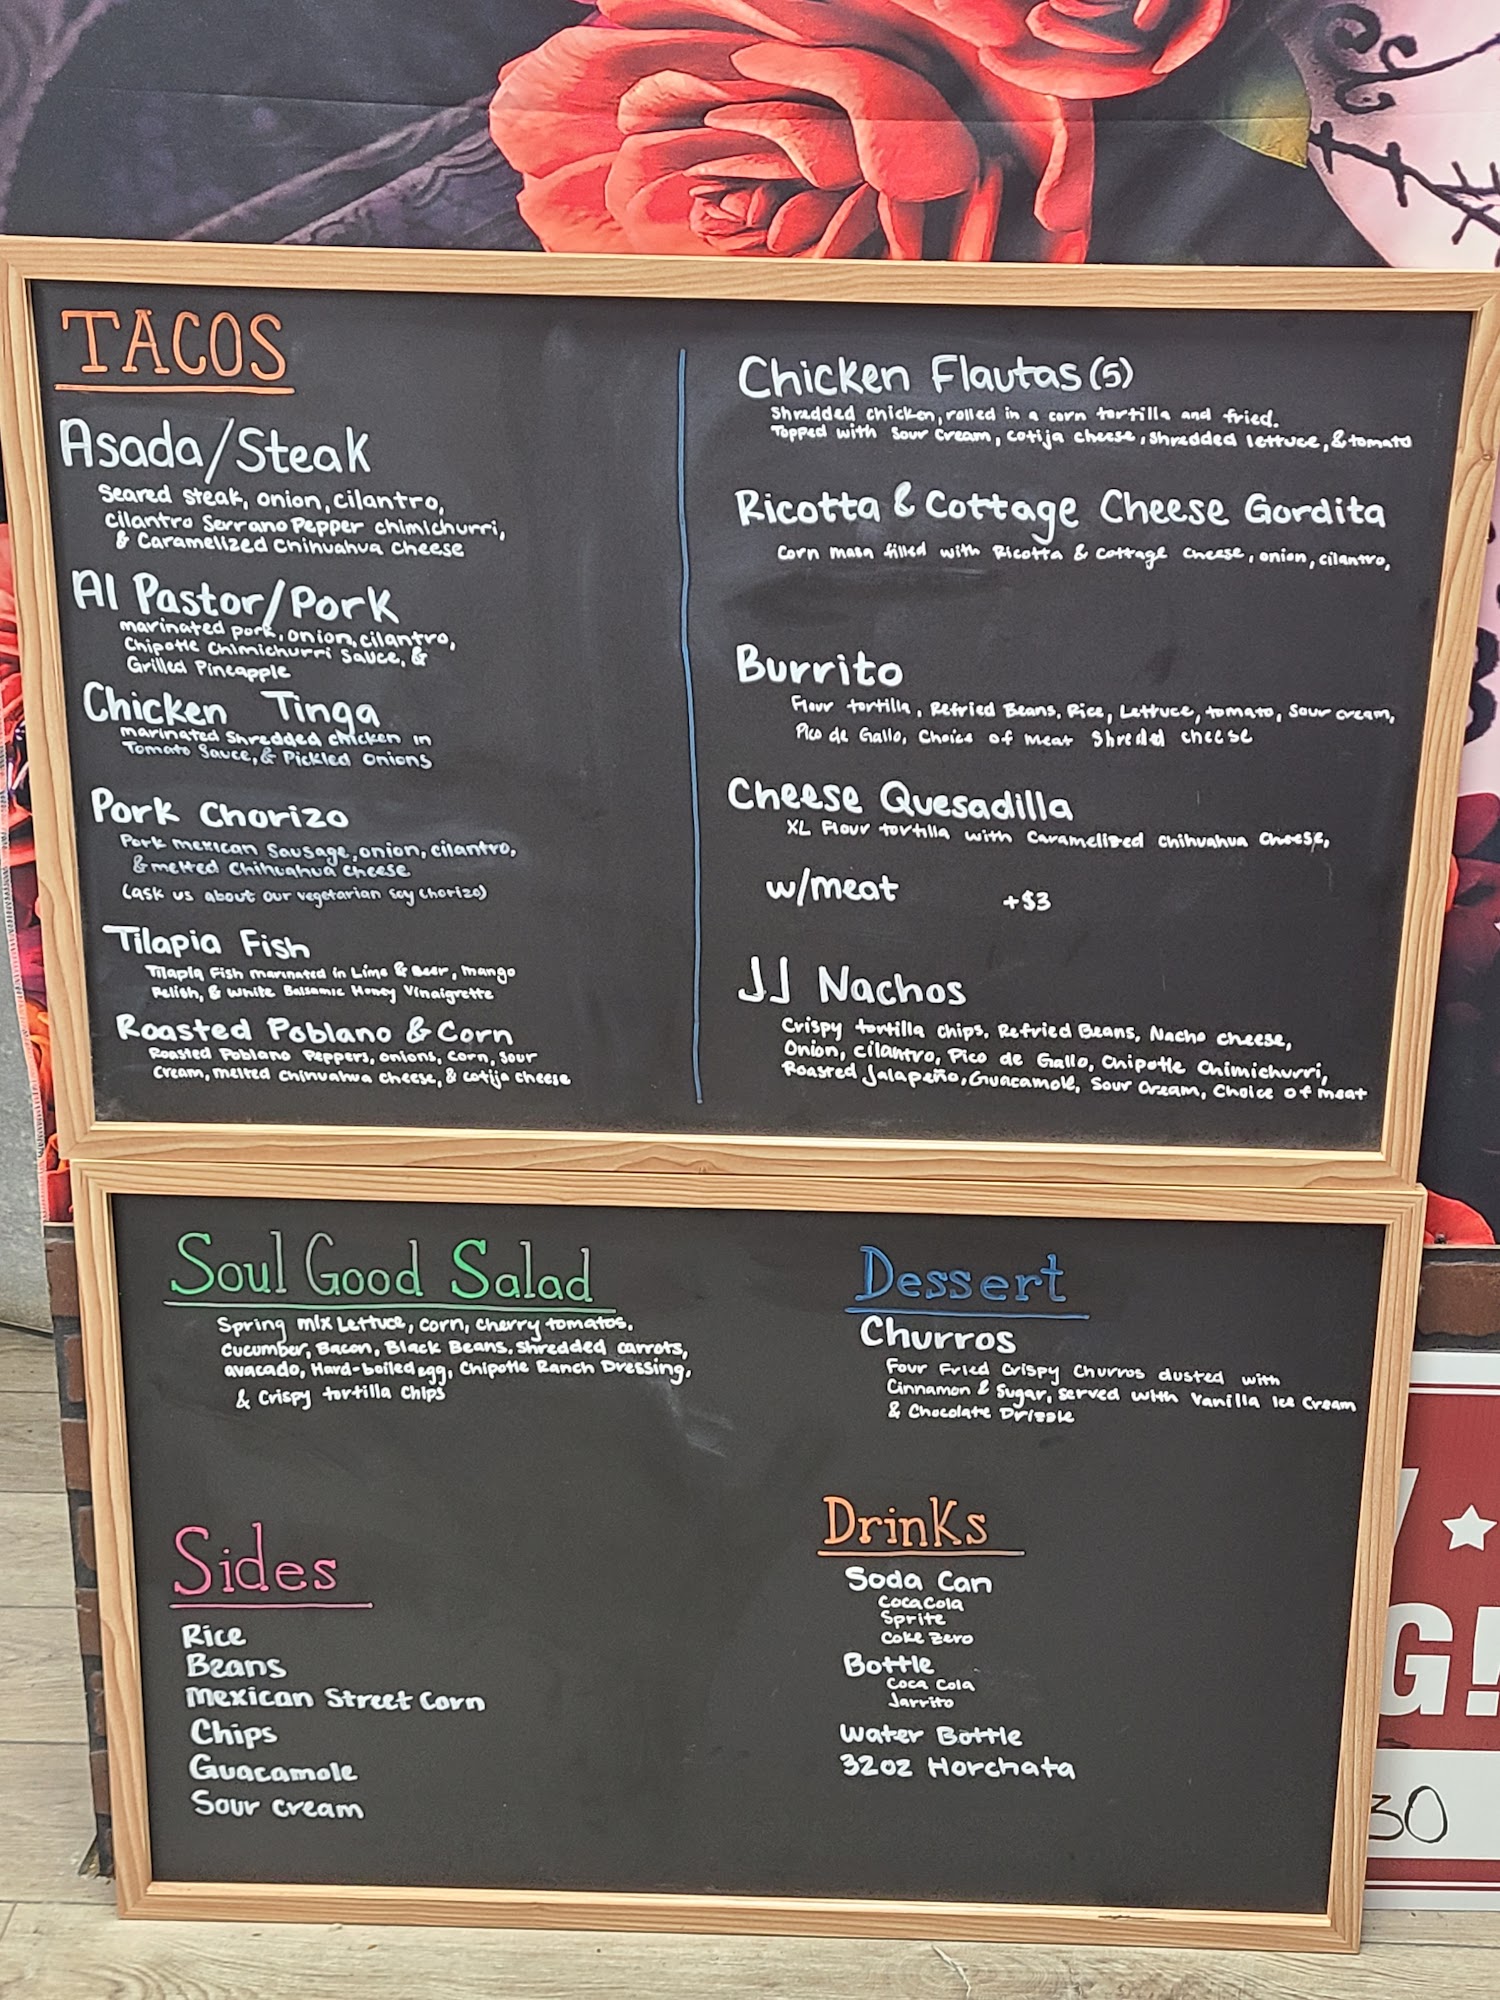 TACOS
Asada/Steak
Seared steak, onion, cilantro,
cilantro Serrano Pepper chimichurri,
& Caramelized Chihuahua cheese
Al Pastor/Pork
marinated pork, onion, cilantro,
Chipotle Chimichurri Sauce, &
Grilled Pineapple
Chicken Tinga
marinated Shredded chicken in
Tomato Sauce, & Pickled onions
Pork Chorizo
Pork mexican Sausage, onion, cilantro,
& melted Chihuahua cheese
(ask us about our vegetarian soy chorizo)
Tilapia Fish
Tilapia Fish marinated in Lime & Beer, mango
Relish, & White Balsamic Honey Vinaigrette
Roasted Poblano & Corn
Roasted Poblano Peppers, onions, corn, sour
cream, melted chihuahua cheese, & cotija cheese
Chicken Flautas (5)
Shredded chicken, rolled in a corn tortilla and fried.
Topped with sour cream, cotija cheese, shredded lettuce, & tomato
Ricotta & Cottage Cheese Gordita
Corn masa filled with Ricotta & cottage cheese, onion, cilantro,
Burrito
Flour tortilla, Refried Beans, Rice, Lettuce, tomato, Sour cream,
Pico de Gallo, Choice of meat Shreded cheese
Cheese Quesadilla
XL Flour tortilla with caramelized chihuahua cheese,
w/meat +$3
JJ Nachos
Crispy tortilla chips, Refried Beans, Nacho cheese,
Onion, cilantro, Pico de Gallo, Chipotle Chimichurri,
Roasted Jalapeño, Guacamole, Sour Cream, Choice of meat
Soul Good Salad
Spring mix Lettuce, corn, cherry tomatos,
cucumber, Bacon, Black Beans, Shredded carrots,
avacado, Hard-boiled egg, Chipotle Ranch Dressing,
& Crispy tortilla chips
Sides
Rice
Beans
Mexican Street Corn
Chips
Guacamole
Sour cream
Dessert
Churros
Four Fried Crispy Churros dusted with
Cinnamon & Sugar, served with Vanilla Ice Cream
& Chocolate Drizzle
Drinks
Soda Can
Coca Cola
Sprite
Coke Zero
Bottle
Coca Cola
Jarrito
Water Bottle
32oz Horchata
G!
30